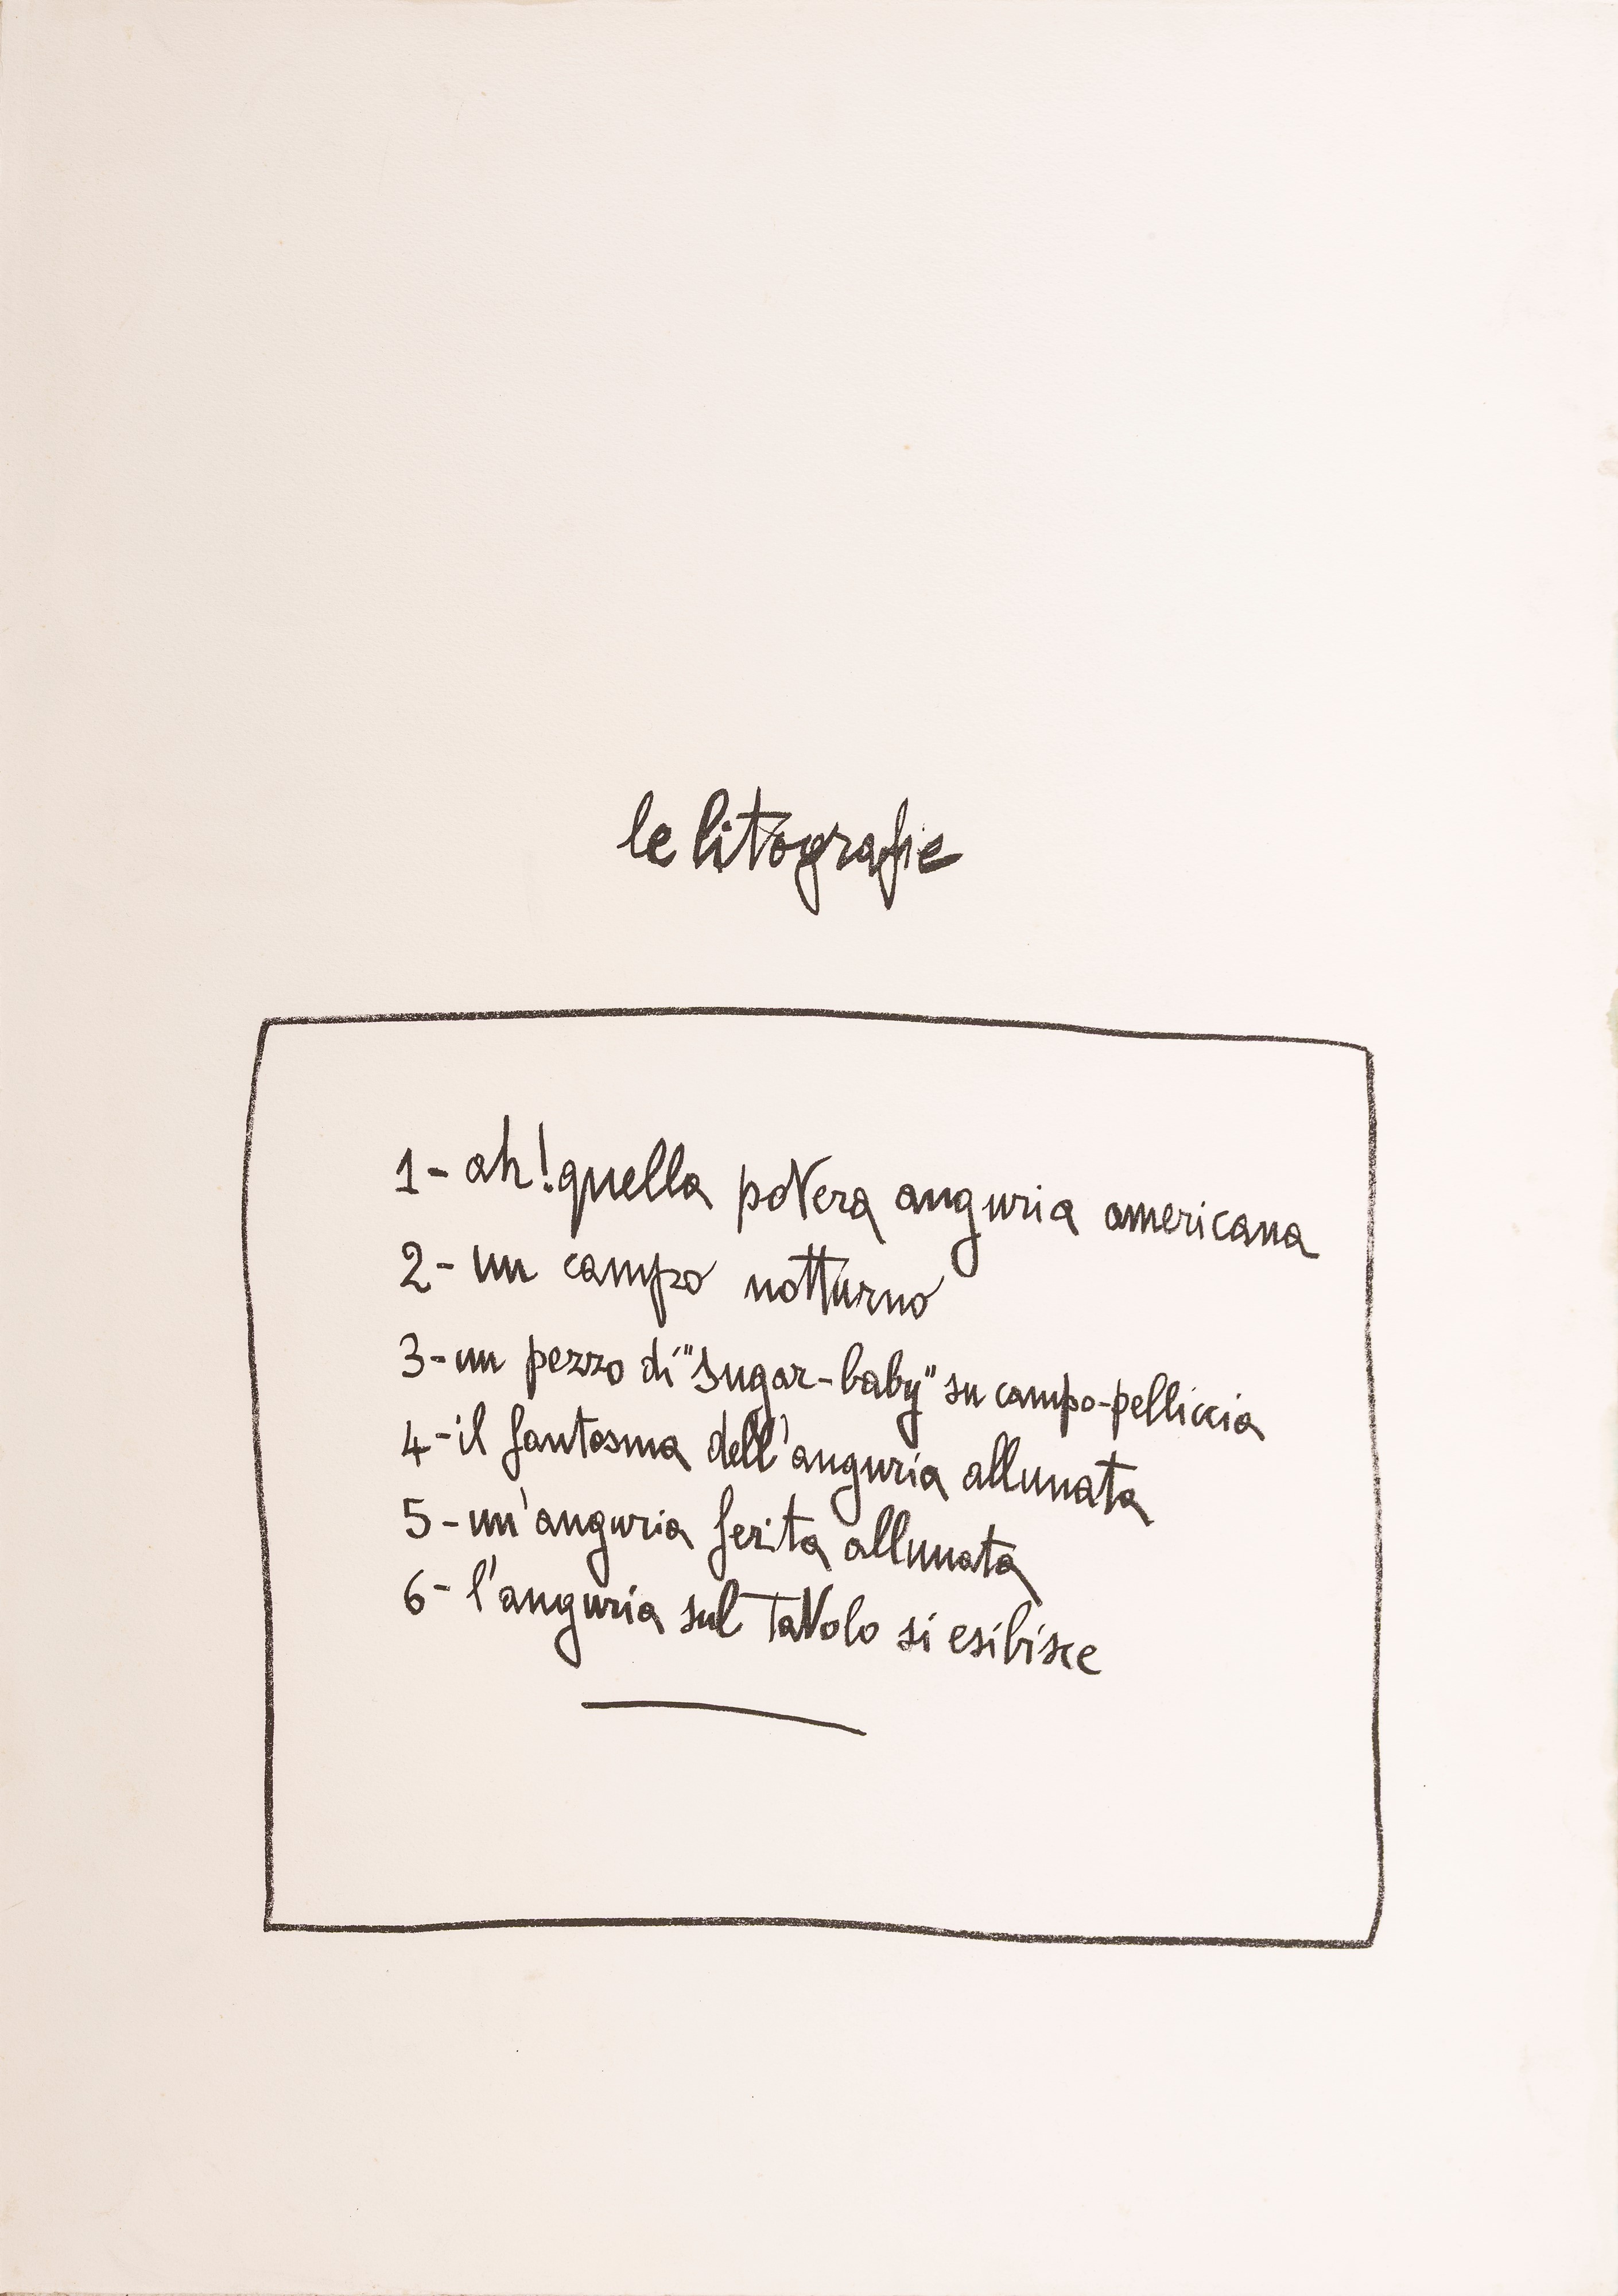 le litografie
1- ah! quella povera anguria americana
2- un campo notturno
3- un pezzo di "sugar-baby" su campo-pelliccia
4- il fantasma dell'anguria allunata
5- un'anguria ferita allunata
6- l'anguria sul tavolo si esibisce